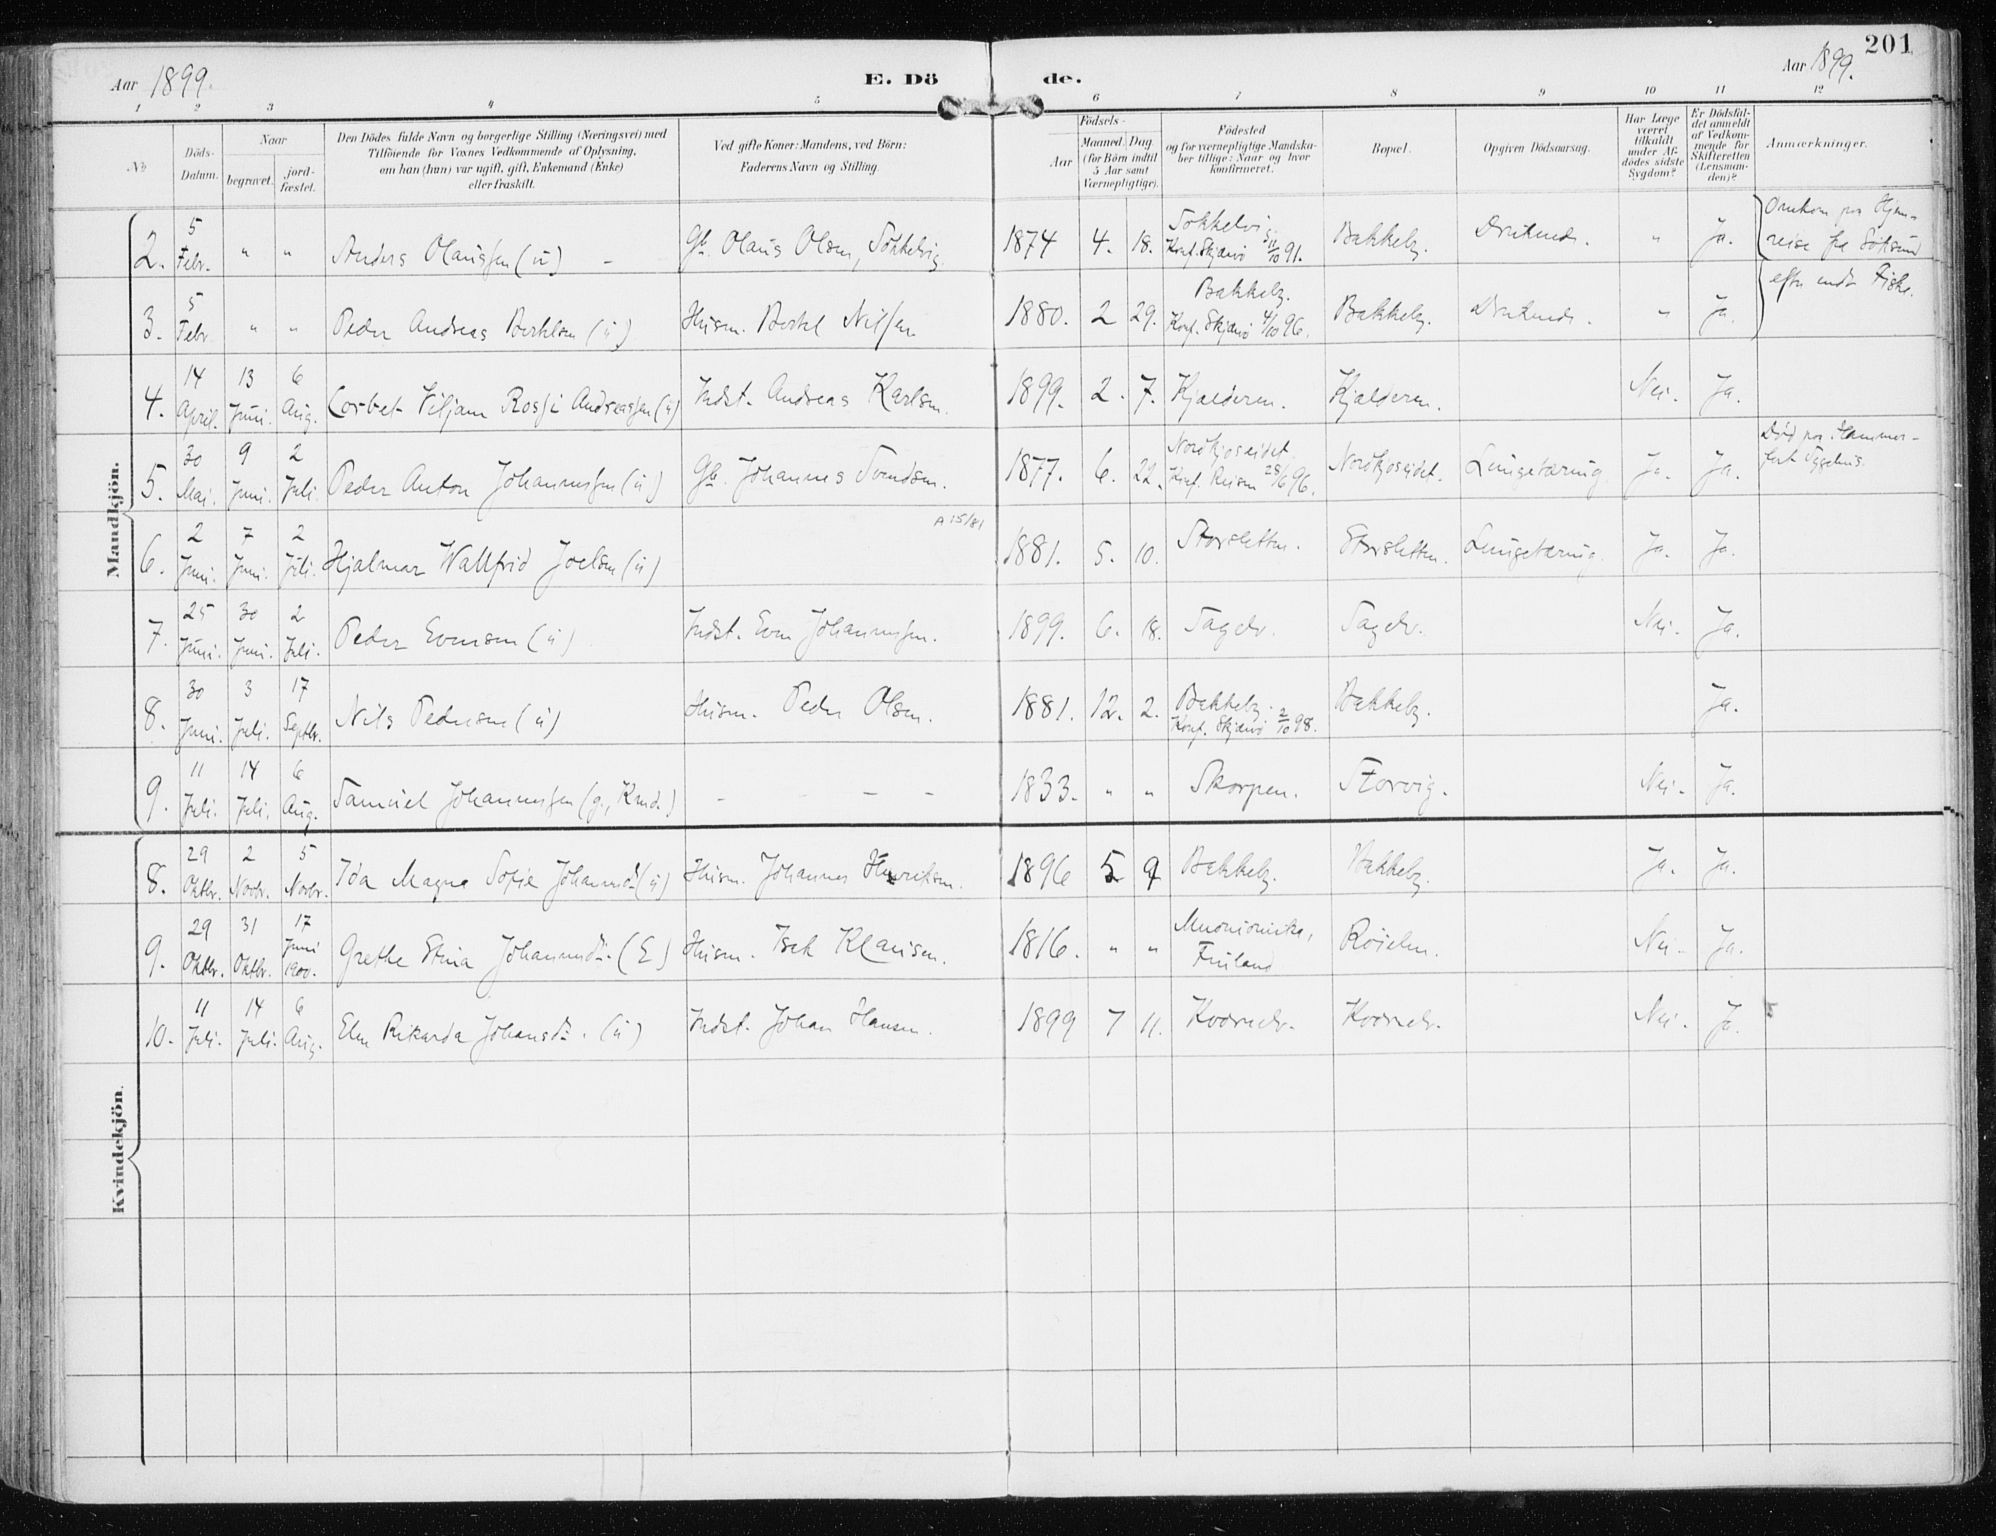 201
Aar 1899.
E. Dö de.
Aar 1899.
1 2 3 4 5 6 7 8 9 10 11 12
No
Döds-
Datum.
Naar
begravet.
jord-
fæstet.
Den Dödes fulde Navn og borgerlige Stilling (Næringsvei) med
Tilföiende for Voxnes Vedkommende af Oplysning,
om han (hun) var ugift, gift, Enkemand (Enke)
eller fraskilt.
Ved gifte Koner: Mandens, ved Börn:
Faderens Navn og Stilling.
Födsels-
Aar
Maaned. Dag
(for Börn indtil
5 Aar samt
Værnepligtige).
Födested
og for værnepligtige Mandska-
ber tillige: Naar og hvor
konfirmeret.
Bopæl.
Opgiven Dödsaarsag.
Har Læge
været
tilkaldt
under Af-
dödes sidste
Sygdom?
Er Dödsfal-
det anmeldt
af Vedkom-
mende for
Skifteretten
(Lensman-
den)?
Anmærkninger.
Mandkjön.
2. 5 Febr. " " Anders Olaussen (ü) - Gb. Olaus Olsen, Sokkelvig. 1874 4. 18. Sokkelvig Konf. Skjærvö 11/10 91. Bakkeby. Druknede. " Ja. Omkom paa Hjem-
reise fra
efter endt Fiske.
3. 5 Febr. " " Peder Andreas Berthelsen (ü) Husm. Bertel Nilsen 1880. 2 29. Bakkeby. Konf. Skjærvö 4/10 96. Bakkeby. Druknede. " Ja.
4. 14 April. 13 Juni. 6 Aug. Corbet Viljam Rossi Andreassen (ü) Indst. Andreas Karlsen. 1899. 2. 7. Kjælderen. Kjælderen. Nei. Ja.
5. 30 Mai. 9 Juni. 2 Juli. Peder Anton Johannessen (ü) Gb. Johannes Tomdsen. 1877. 6. 22. Nordkjoseidet. Konf. Reisen 28/6 96. Nordkjoseidet. Lungetæring. Ja. Ja. Död paa Hammer-
fest Sygehus.
A 15/81
6. 2 Juni. 7 Juni. 2 Juli. Hjalmar Wallfrid Joelsen (ü) 1881. 5. 10. Storsletten. Storsletten. Lungetæring. Ja. Ja.
7. 25 Juni. 30 Juni. 2 Juli. Peder Evensen (ü) Indst. Even Johannessen. 1899. 6. 18. Tagelv. Tagelv. Nei. Ja.
8. 30 Juni. 3 Juli. 17 Septbr. Nils Pedersen (ü) Husm. Peder Olsen. 1881. 12. 2. Bakkeby. Konf. Skjærvö 2/10 98. Bakkeby. Ja.
9. 11 Juli. 14 Juli. 6 Aug. Samuel Johannessen (g., Kmd.) - - - - 1833. " " Skorpen. Storvig. Nei. Ja.
Kvindekjön.
8. 29 Oktbr. 2 Novbr. 5 Novbr. Ida Magna Sofie Johannesdtr (ü) Husm. Johannes Henriksen. 1896 5 9 Bakkeby. Bakkeby. Ja. Ja.
9. 29 Oktbr. 31 Oktbr. 17 Juni 1900. Grethe Stina Johannesdtr. (E) Husm. Isak Klausen. 1816. " " Muonioniska, Finland Röielen. Nei. Ja.
10. 11 Juli. 14 Juli. 6 Aug. Elen Rikarda Johansdtr. (ü) Indst. Johan Hansen. 1899 7 11. Kodvelv. Kodvelv. Nei. Ja.